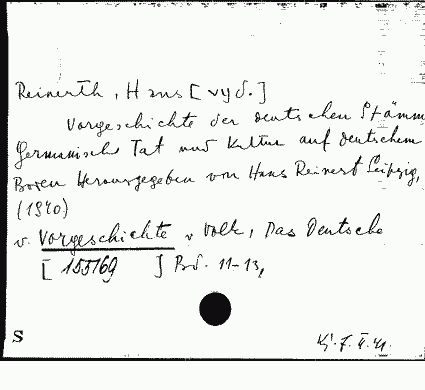 Reinerth, Hans [vyd.]
Vorgeschichte der deutschen Stämm
Germanische Tat und Kultur auf deutschem
Boden Herausgegeben von Hans Reinert Leipzig,
(1940)
v. Vorgeschichte v Volk, Das Deutsche
[155169 ] Bd. 11-13,
S